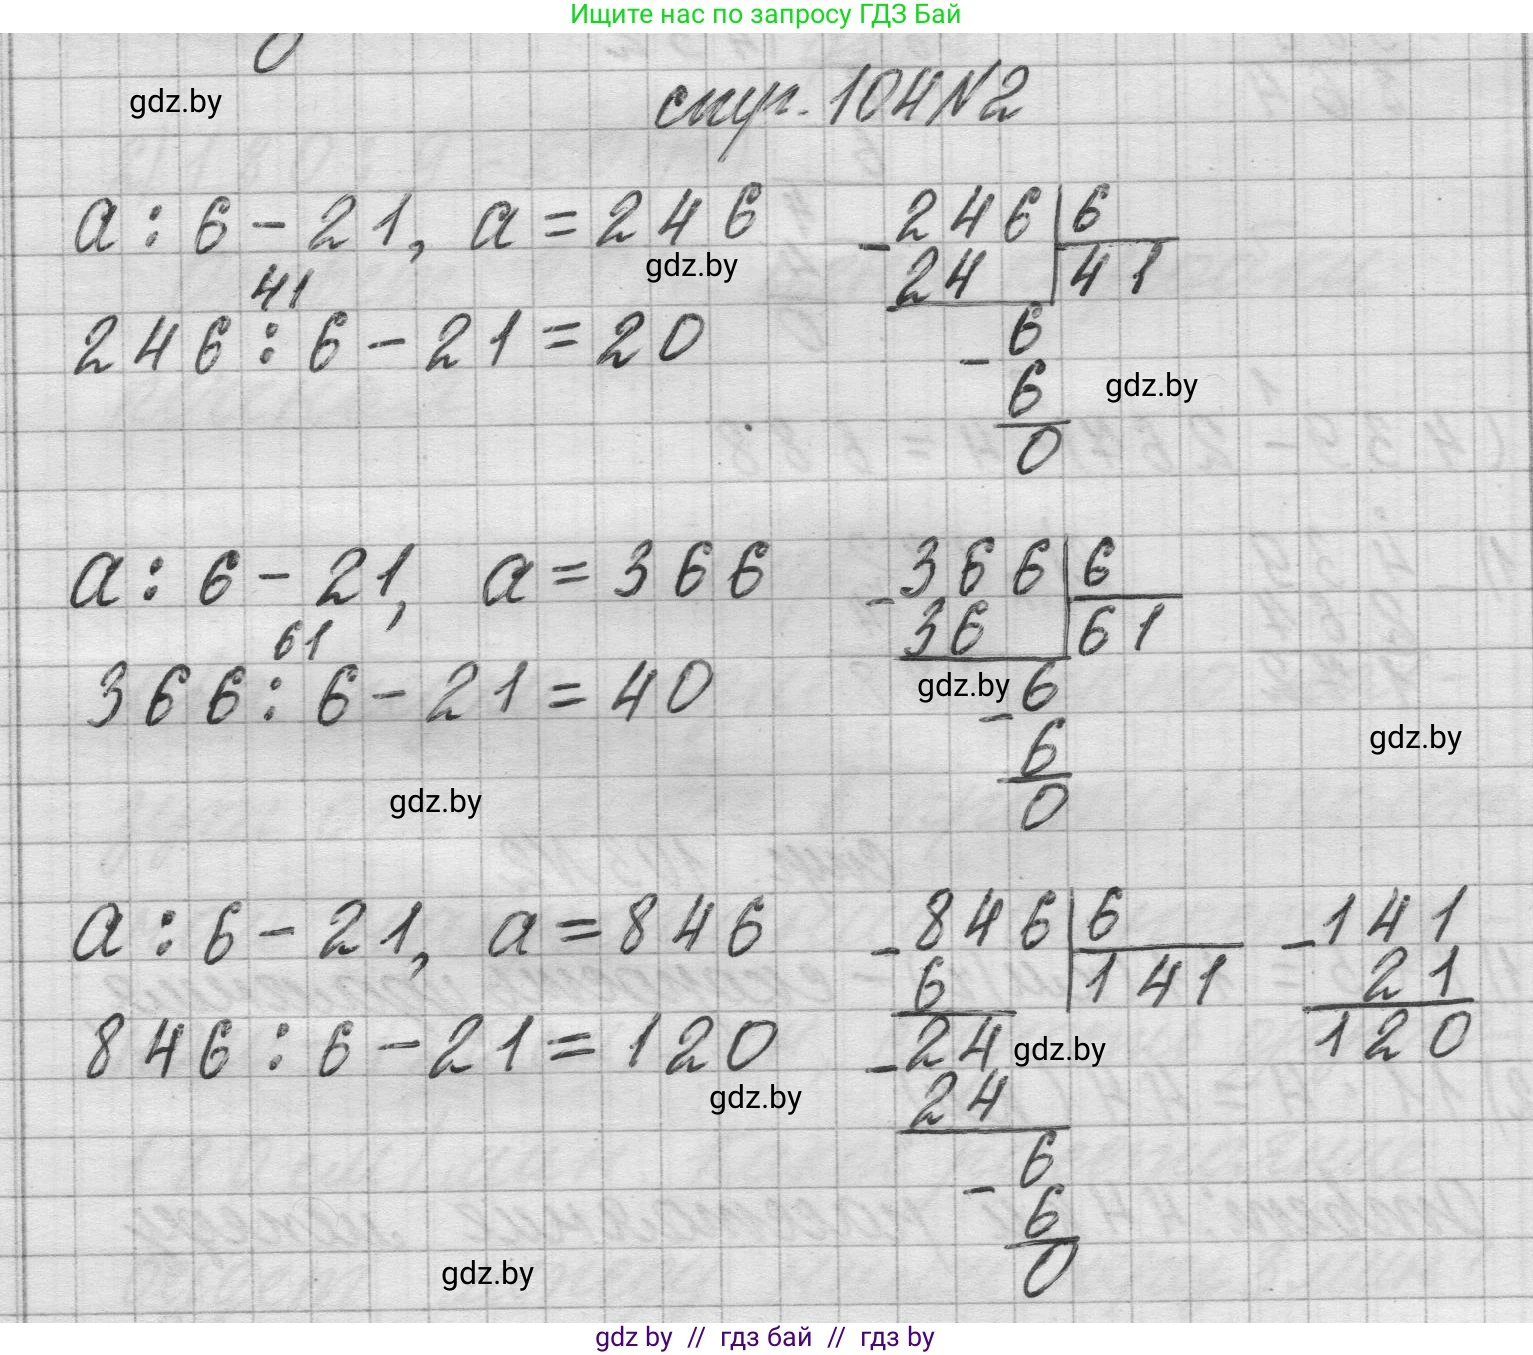 Ищите нас по запросу ГДЗ Бай
gdz.by
стр. 104 №2
a : 6 - 21, a = 246
gdz.by
41
246 : 6 - 21 = 20
-246 | 6
24 | 41
- 6
6
0
gdz.by
a : 6 - 21, a = 366
61
366 : 6 - 21 = 40
-366 | 6
36 | 61
gdz.by
- 6
6
0
gdz.by
gdz.by
a : 6 - 21, a = 846
846 : 6 - 21 = 120
gdz.by
-846 | 6
6 | 141
-24
24
- 6
6
0
gdz.by
-141
21
120
gdz.by
gdz by // гдз бай // гдз by